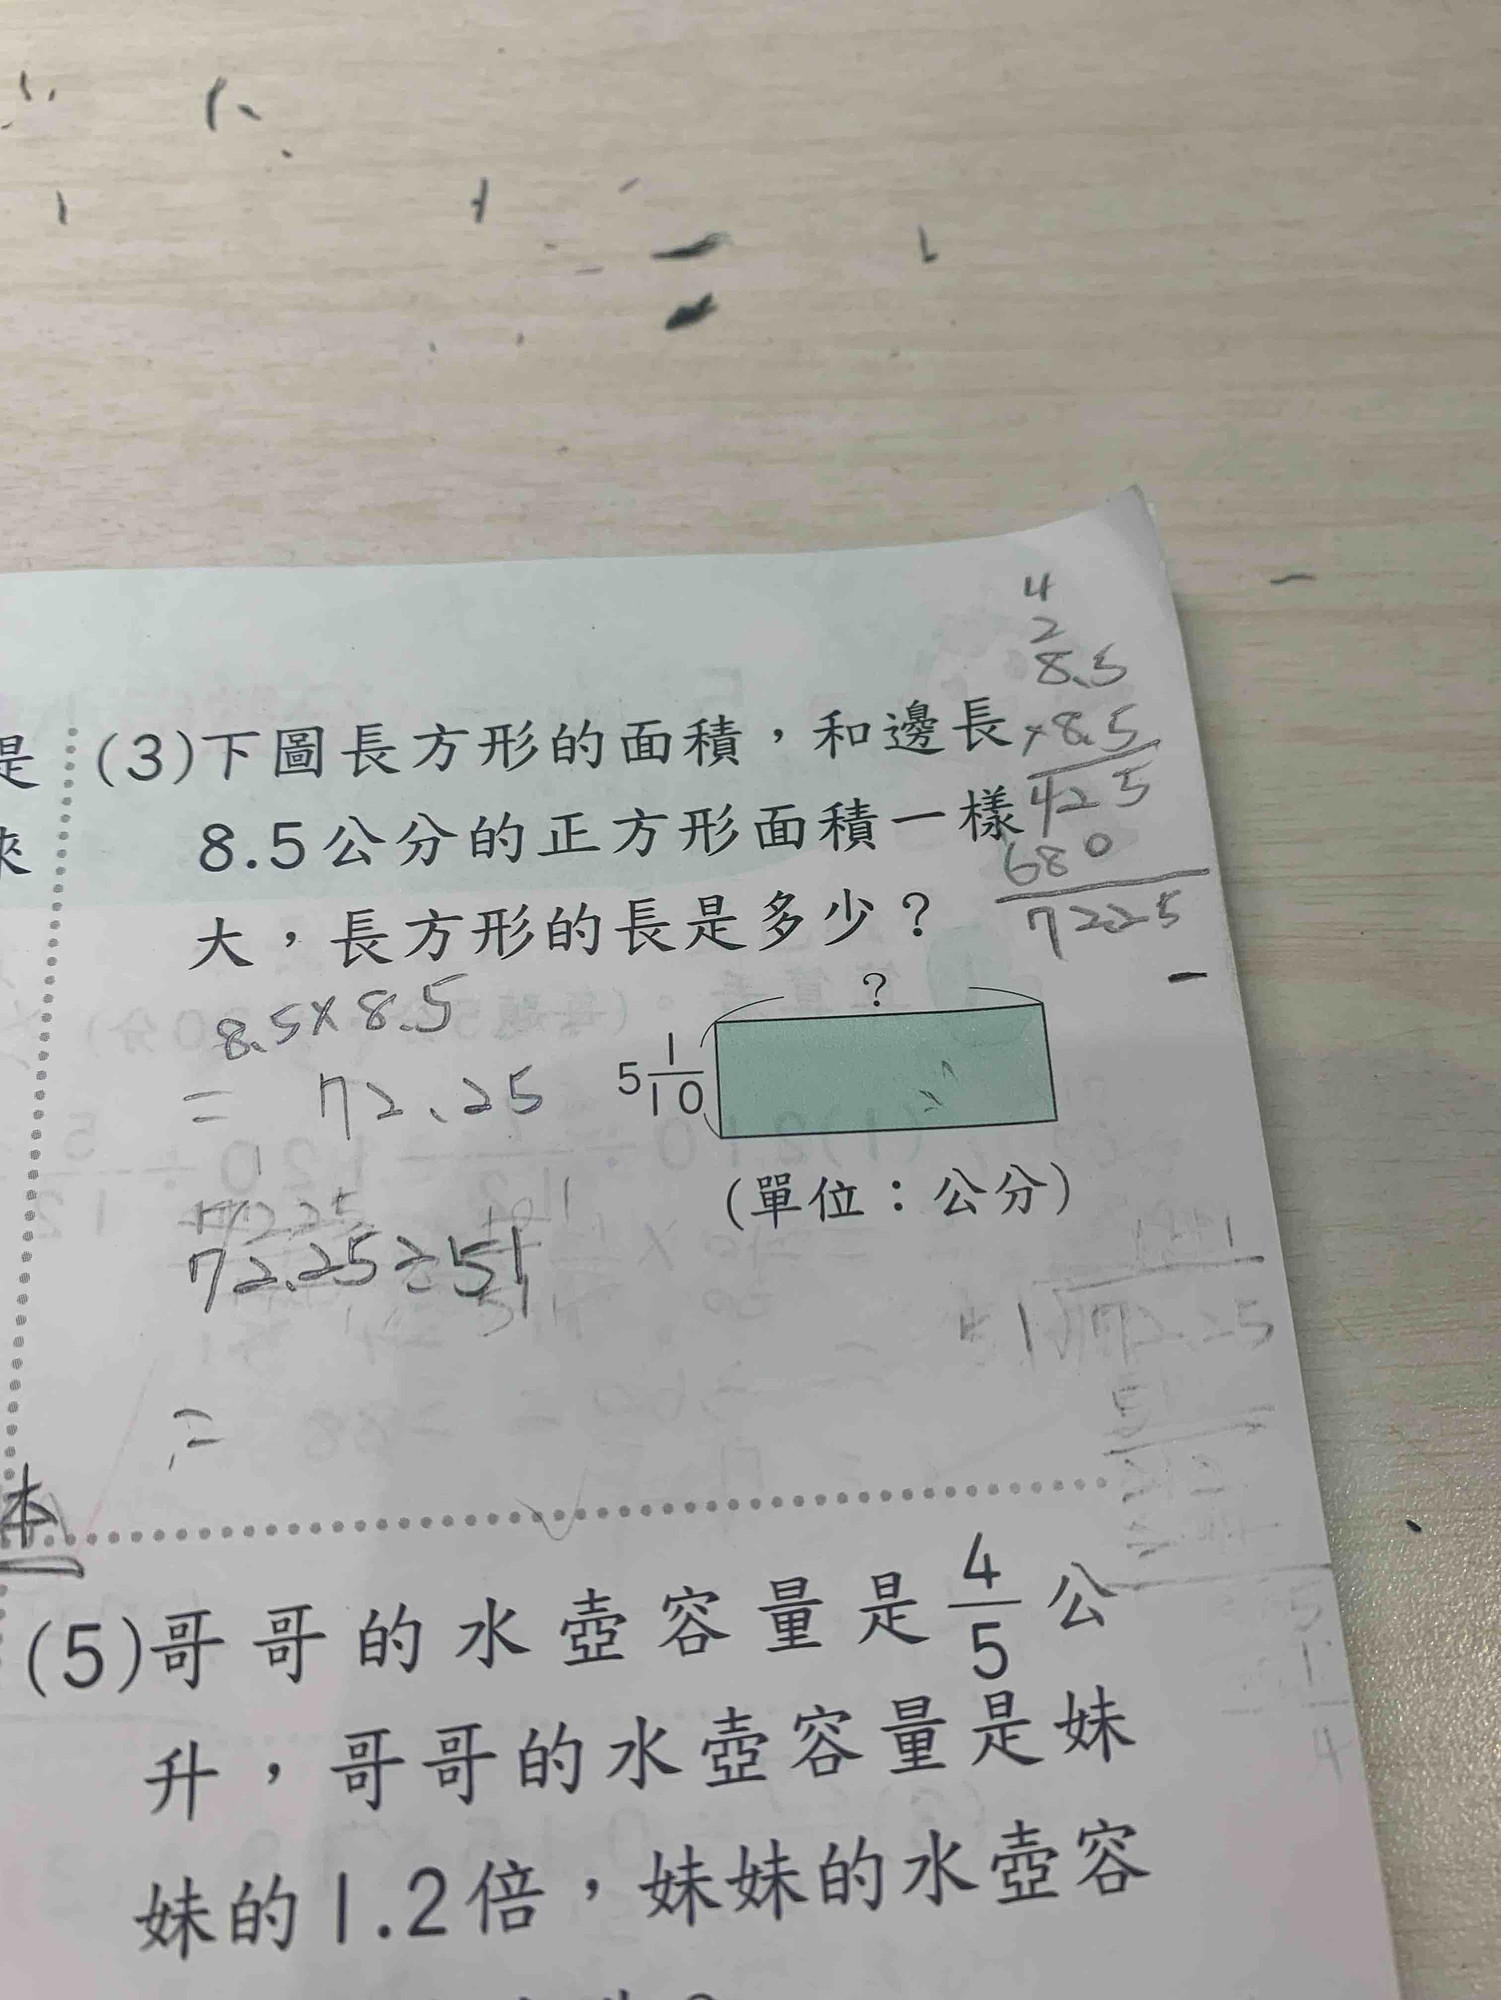 是
(3)下圖長方形的面積，和邊長
8.5公分的正方形面積一樣
大，長方形的長是多少？
4
2
8.5
×8.5
425
680
7225
8.5×8.5
= 72.25
?
5 1/10
(單位：公分)
72.25÷51
=
51 72.25
5
本
(5)哥哥的水壺容量是 4/5 公
升，哥哥的水壺容量是妹
妹的1.2倍，妹妹的水壺容